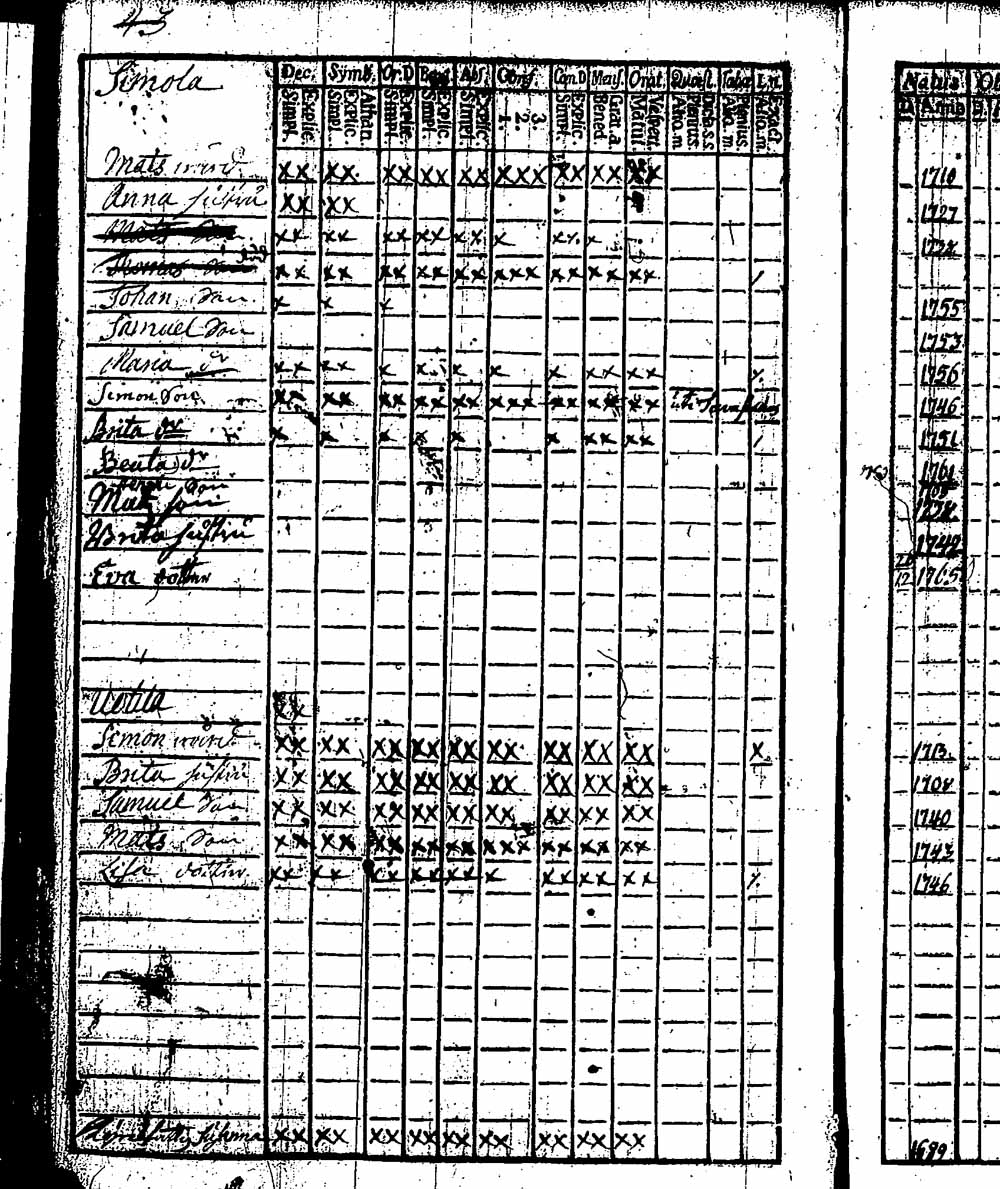 43
Simola Dec. Symb. Or.D Bapt. Abs. Conf. Cœn.D Mens. Orat. Quæst. Taba L.n. Natus
Simpl. Explic. Simpl. Explic. Athan. Simpl. Explic. Simpl. Explic. Simpl. Explic. 1. 2. 3. Simpl. Explic. Bened. Grat. a. Matut. Vespert. Aliq. m Plenius. Dicta s.s Aliq. m Plenius. Aliq. m. Exact. D Anno
Mats xx xx. xx xx xx xxx xx xx xx 1710
Anna hustru xx xx 1727
Mats Son xx xx xx xx xx x x 1728
Thomas Son xx xx xx xx xx xxx xx xx xx /
Johan Son x x x 1755
Samuel Son 1753
Maria dr xx xx x x x x x xx xx 1756
Simon Son xx xx xx xx xx xxx xx xx xx 1746
Brita dr x x x x x x xx xx / 1751
Beata dr 1761
Mats Son 1738
Brita hustru 1742
Eva dotter 12 1765
Uotila
Simon xx xx xx xx xx xx xx xx xx x 1713.
Brita hustru xx xx xx xx xx xx xx xx xx 1708
Samuel Son xx xx xx xx xx xx xx xx xx 1740
Mats Son xx xx xx xx xx xxx xx xx xx 1743
Lisa dotter xx xx xx xx xx x xx xx xx 1746
xx xx xx xx xx xx xx xx xx 1699